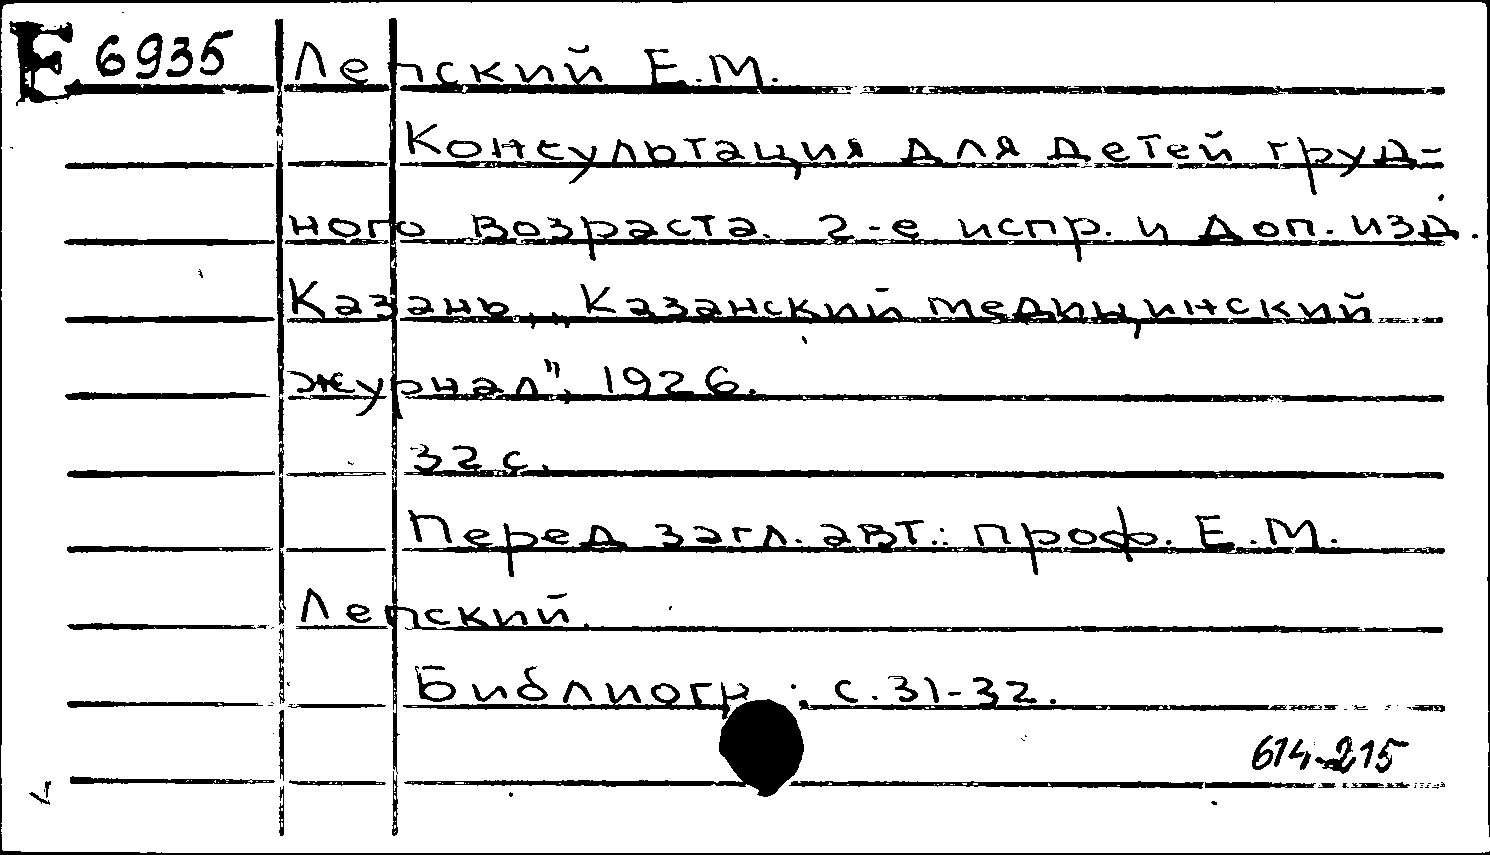 Е 6935 Лепский Е.М.
Консультация для детей груд-
ного возраста. 2-е испр. и доп. изд.
Казань, „Казанский медицинский
журнал", 1926.
32 с.
Перед загл. авт.: проф. Е.М.
Лепский.
Библиогр.: с. 31-32.
614-215